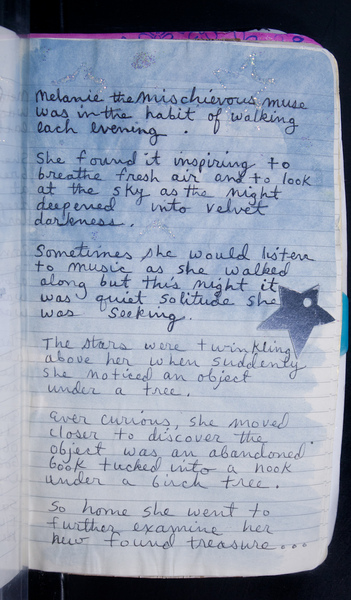 Melanie the Mischievous Muse
was in the habit of walking
each evening .
She found it inspiring to
breathe fresh air and to look
at the sky as the night
deepened into velvet
darkness.
Sometimes she would listen
to music as she walked
along but this night it
was quiet solitude she
was seeking.
The stars were twinkling
above her when suddenly
she noticed an object
under a tree.
Ever curious, she moved
closer to discover the
object was an abandoned
book tucked into a nook
under a birch tree.
So home she went to
further examine her
new found treasure...